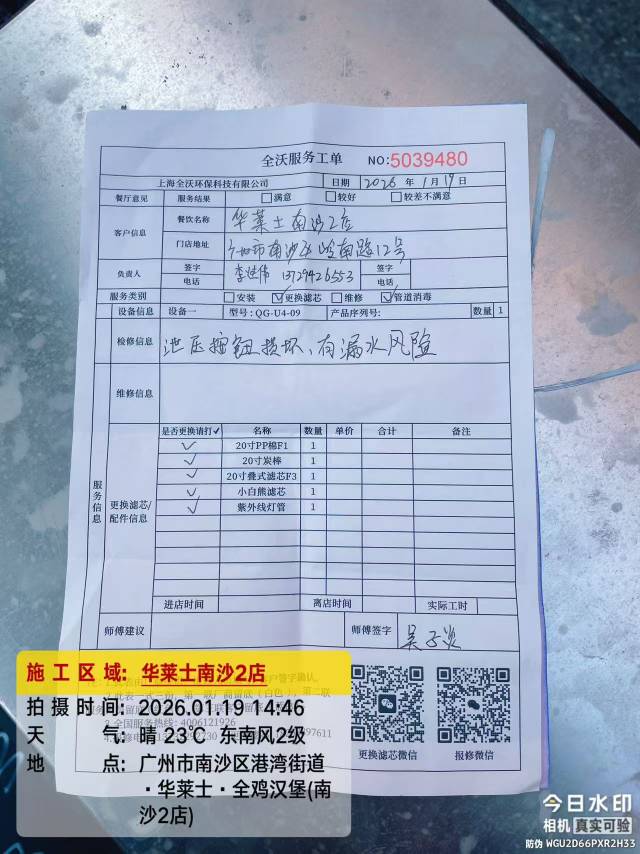 全沃服务工单 NO:5039480
上海全沃环保科技有限公司 日期 2026 年 1 月 19 日
餐厅意见 服务结果 满意 较好 较差不满意
客户信息 餐饮名称 华莱士南沙2店
门店地址 广州市南沙区岭南路12号
负责人 签字 电话 李健伟 13729426553 签字 电话
服务类别 安装 ✓更换滤芯 维修 ✓管道消毒
设备信息 设备一 型号:QG-U4-09 产品序列号: 数量 1
检修信息 泄压按钮损坏、有漏水风险
维修信息
服务信息
更换滤芯/配件信息
是否更换请打✓ 名称 数量 单价 合计 备注
✓ 20寸PP棉F1 1
✓ 20寸炭棒 1
✓ 20寸叠式滤芯F3 1
✓ 小白熊滤芯 1
✓ 紫外线灯管 1
进店时间 离店时间 实际工时
师傅建议 师傅签字
更换滤芯微信 报修微信
施工区域: 华莱士南沙2店
拍摄时间: 2026.01.19 14:46
天气: 晴 23℃ 东南风2级
地点: 广州市南沙区港湾街道
·华莱士·全鸡汉堡(南
沙2店)
全国服务热线: 4006121926
今日水印
相机 真实可验
防伪 WGU2D66PXR2H33